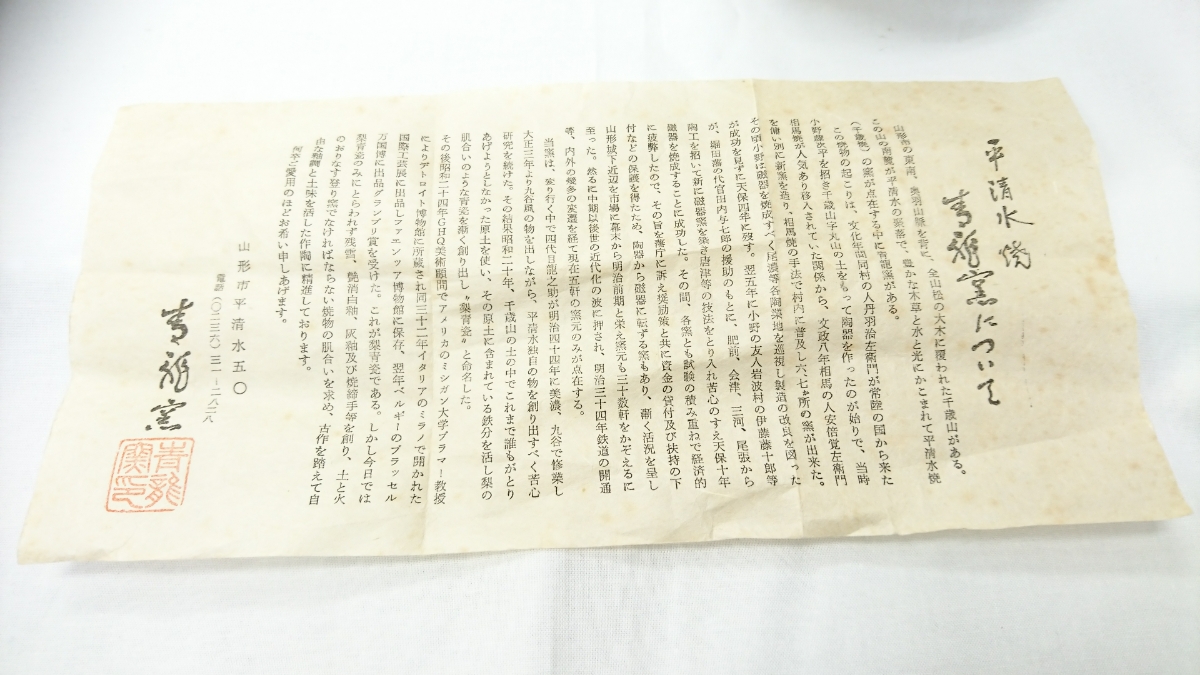 平清水焼
青龍窯について
山形市の東南、奥羽山脈を背に、全山松の大木に覆われた千歳山がある。
この山の南麓が平清水の聚落で、豊かな木草と水と光にかこまれて平清水焼
（千歳焼）の窯が点在する中に青龍窯がある。
この焼物の起こりは、文化年間同村の人丹羽治左衛門が常陸の国から来た
小野藤次平を招き千歳山字丸山の土をもって陶器を作ったのが始りで、当時
相馬焼が人気あり移入されていた関係から、文政八年相馬の人安倍覚左衛門
を雇い別に新窯を造り、相馬焼の手法で村内に普及し六、七ヵ所の窯が出来た。
その頃小野は磁器を焼成すべく尾濃等各陶業地を巡視し製造の改良を図った
が成功を見ずに天保四年に歿す。翌五年に小野の友人岩波村の伊藤藤十郎等
が、堀田藩の代官田内与七郎の援助のもとに、肥前、会津、三河、尾張から
陶工を招いて新に磁器窯を築き唐津等の技法をとり入れ苦心のすえ天保十年
磁器を焼成することに成功した。その間、各窯とも試験の積み重ねで経済的
に疲弊したので、その旨を藩庁に訴え奨励策と共に資金の貸付及び扶持の下
付などの保護を得たため、陶器から磁器に転ずる窯もあり、漸く活況を呈し
山形城下近辺を市場に幕末から明治前期と栄え窯元も三十数軒をかぞえるに
至った。然るに中期以後世の近代化の波に押され、明治三十四年鉄道の開通
等、内外の幾多の変遷を経て現在五軒の窯元のみが点在する。
当窯は、変り行く中で四代目龍之助が明治四十四年に美濃、九谷で修業し
大正三年より九谷風の物を出しながら、平清水独自の物を創り出すべく苦心
研究を続けた。その結果昭和二十年、千歳山の土の中でこれまで誰もがとり
あげようとしなかった原土を使い、その原土に含まれている鉄分を活し梨の
肌合いのような青瓷を漸く創り出し〝梨青瓷〟と命名した。
その後昭和二十四年GHQ美術顧問でアメリカのミシガン大学プラマー教授
によりデトロイト博物館に所蔵され同三十二年イタリアのミラノで開かれた
国際工芸展に出品しファエンツア博物館に保存、翌年ベルギーのブラッセル
万国博に出品グランプリ賞を受けた。これが梨青瓷である。しかし今日では
梨青瓷のみにとらわれず残雪、艶消白釉、灰釉及び焼締手等を創り、土と火
のおりなす登り窯でなければならない焼物の肌合いを求め、古作を踏えて自
由な釉調と土味を活した作陶に精進しております。
何卒ご愛用のほどお希い申しあげます。
山形市平清水五〇
電話（〇二三六）三一-二八二八
青龍窯
青龍窯印